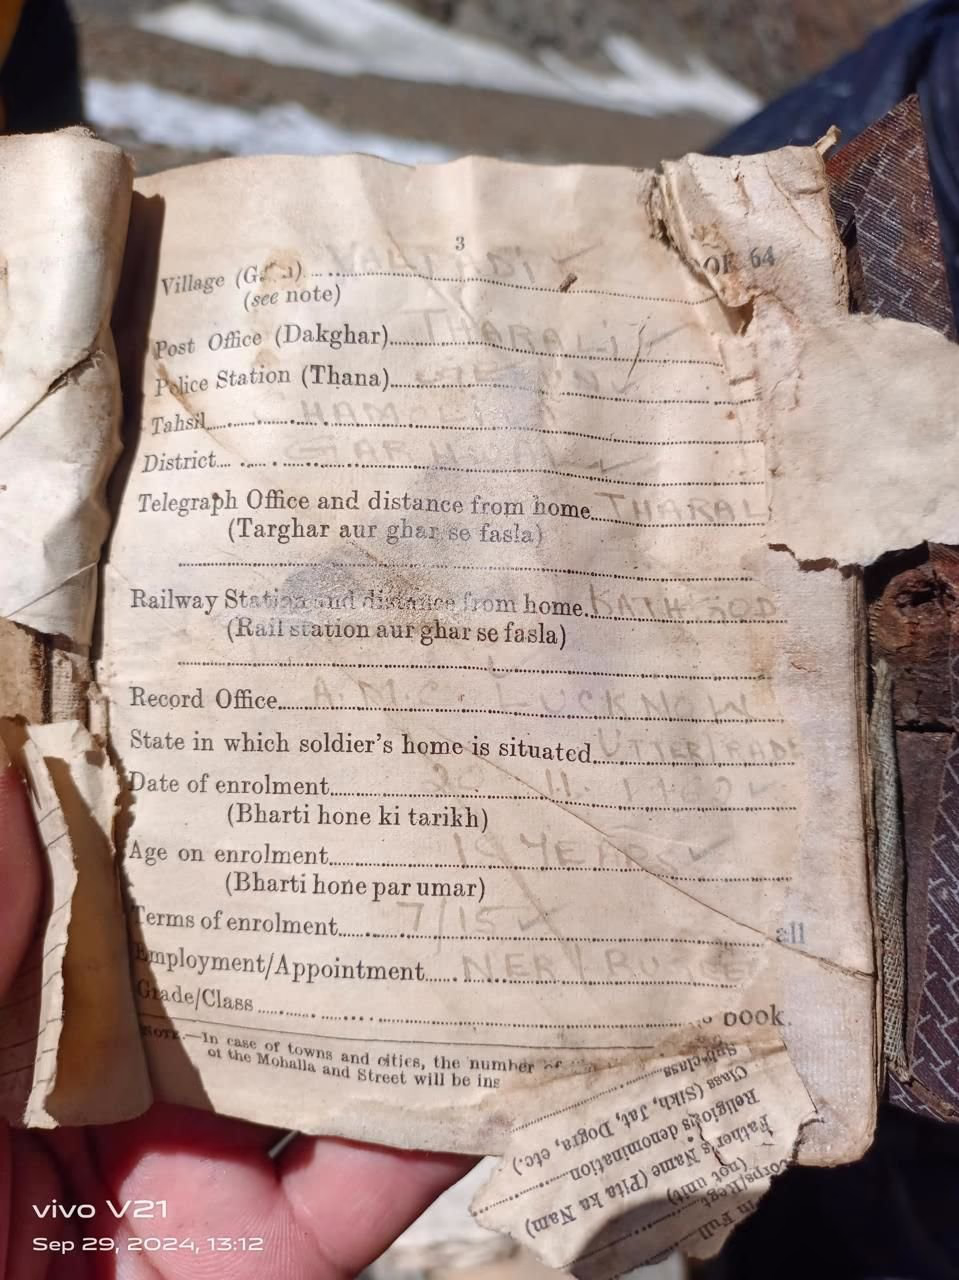 3
OK 64
Village (G
(see note)
Post Office (Dakghar) THARALI
Police Station (Thana)
Tahsil CHAMOLI
District GARHWAL
Telegraph Office and distance from home THARAL
(Targhar aur ghar se fasla)
Railway Station and distance from home. KATH GOD
(Rail station aur ghar se fasla)
Record Office A.M.C. LUCKNOW
State in which soldier's home is situated UTTER PRADE
Date of enrolment 11.
(Bharti hone ki tarikh)
Age on enrolment YEARS
(Bharti hone par umar)
Terms of enrolment 7/15
all
Employment/Appointment
Grade/Class
book.
NOTE.—In case of towns and cities, the number of
of the Mohalla and Street will be ins
Sub-class
Class (Sikh, Jat, Dogra, etc.)
Religious denomination
Father's Name (Pita ka Nam)
(not unit)
Corps/Regt
in Full
vivo V21
Sep 29, 2024, 13:12